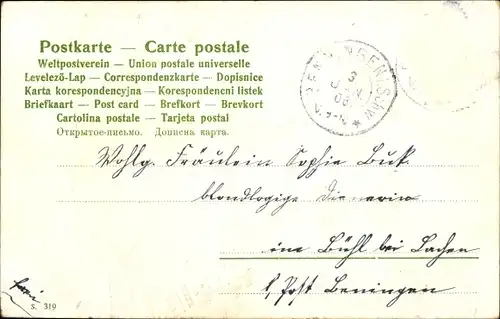 Postkarte — Carte postale
Weltpostverein — Union postale universelle
Levelező-Lap — Correspondenzkarte — Dopisnice
Karta korespondencyjna — Korespondencni listek
Briefkaart — Post card — Brefkort — Brevkort
Cartolina postale — Tarjeta postal
Открытое-письмо. Дописна карта.
3
JAN
06
Wohlg. Fräulein Sophie Buk.
im Bühl bei Lachen
Post Beningen
S. 319